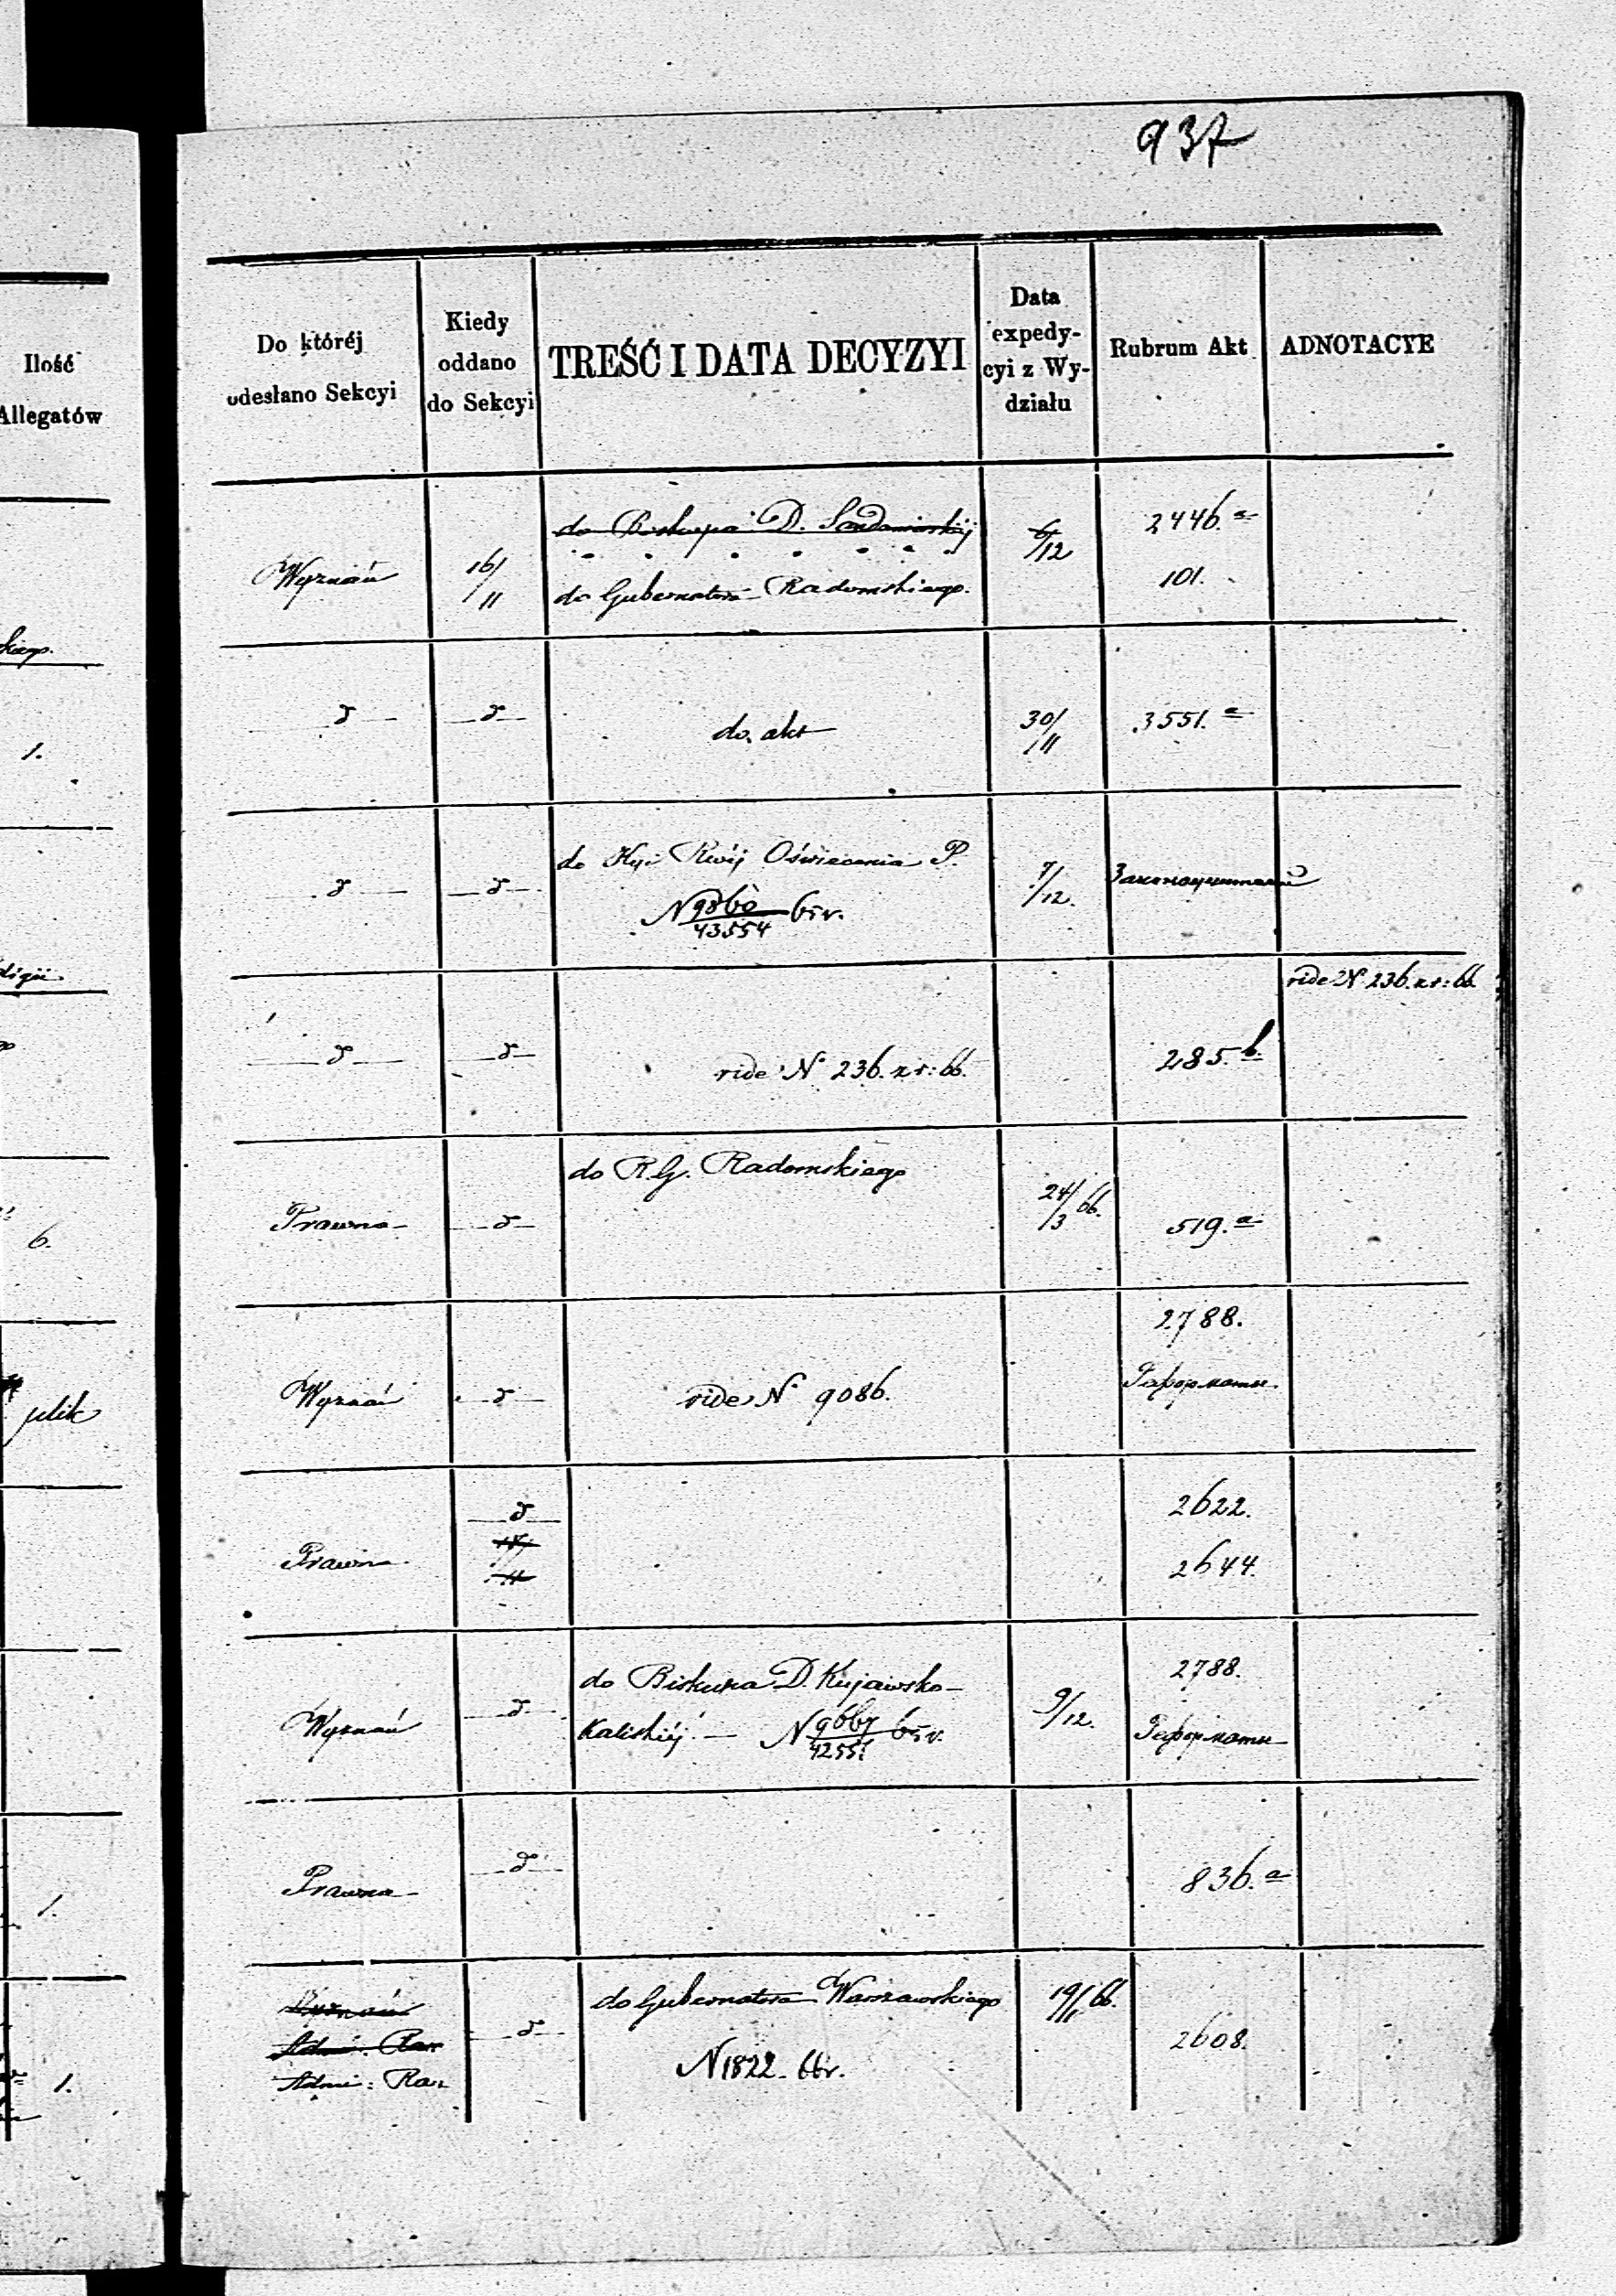 937
Ilość
Allegatów
Do któréj
odesłano Sekcyi
Kiedy
oddano
do Sekcyi
TREŚĆ I DATA DECYZYI
Data
expedy-
cyi z Wy-
działu
Rubrum Akt
ADNOTACYE
Wyznań
16/11
do Biskupa D. Sandomirskiéj
do Gubernatora Radomskiego.
6/12
2446. a
101.
d
d
do akt
30/11
3551. a
1.
d
d
do Kyi Rwéj Oświecenia P.
N 9860/43554 65 r.
7/12.
d
d
vide N 236. z r: 66.
285. b.
vide N 236. z r: 66.
Prawna
d
do R.G. Radomskiego
24/3 66.
519. a
6.
Wyznań
d
vide N 9086.
2788.
Реформаты
plik
Prawna
d
2622.
2644.
Wyznań
d
do Biskupa D. Kujawsko-
Kaliskiéj — N 9667/42551 65 r.
9/12.
2788.
Реформаты
Prawna
d
836. a
1.
Wyznań
Admi: Raz
Admi: Raz
d
do Gubernatora Warszawskiego
N 1822. 66 r.
19/11 66.
2608.
1.